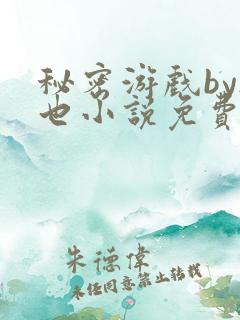 秘密游戏by
也小说免费
朱德伟
未经同意禁止转载